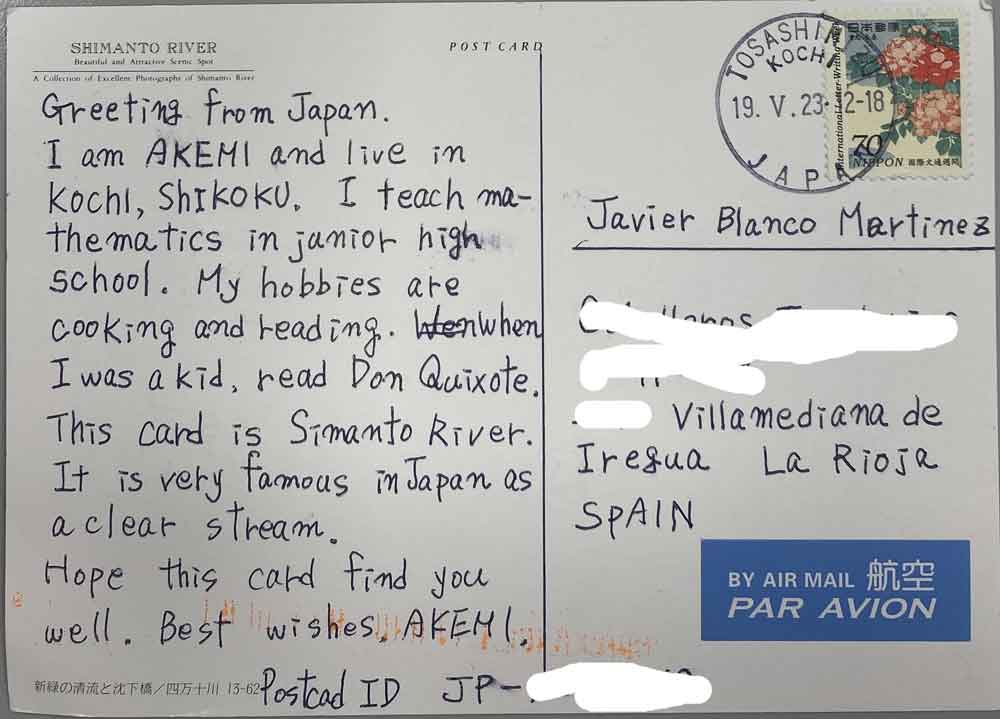 SHIMANTO RIVER
Beautiful and Attractive Scenic Spot
A Collection of Excellent Photographs of Shimanto River
POST CARD
Greeting from Japan.
I am AKEMI and live in
Kochi, SHIKOKU. I teach ma-
thematics in junior high
school. My hobbies are
cooking and reading. Wen When
I was a kid, read Don Quixote.
This card is Simanto River.
It is very famous in Japan as
a clear stream.
Hope this card find you
well. Best wishes. AKEMI.
Postcad ID JP-
新緑の清流と沈下橋/四万十川 13-62
TOSASHIMIZU
KOCHI
19. V. 23. 12-18
JAPAN
日本郵便
International Letter-Writing Week
70
NIPPON 国際文通週間
Javier Blanco Martinez
Villamediana de
Iregua La Rioja
SPAIN
BY AIR MAIL 航空
PAR AVION